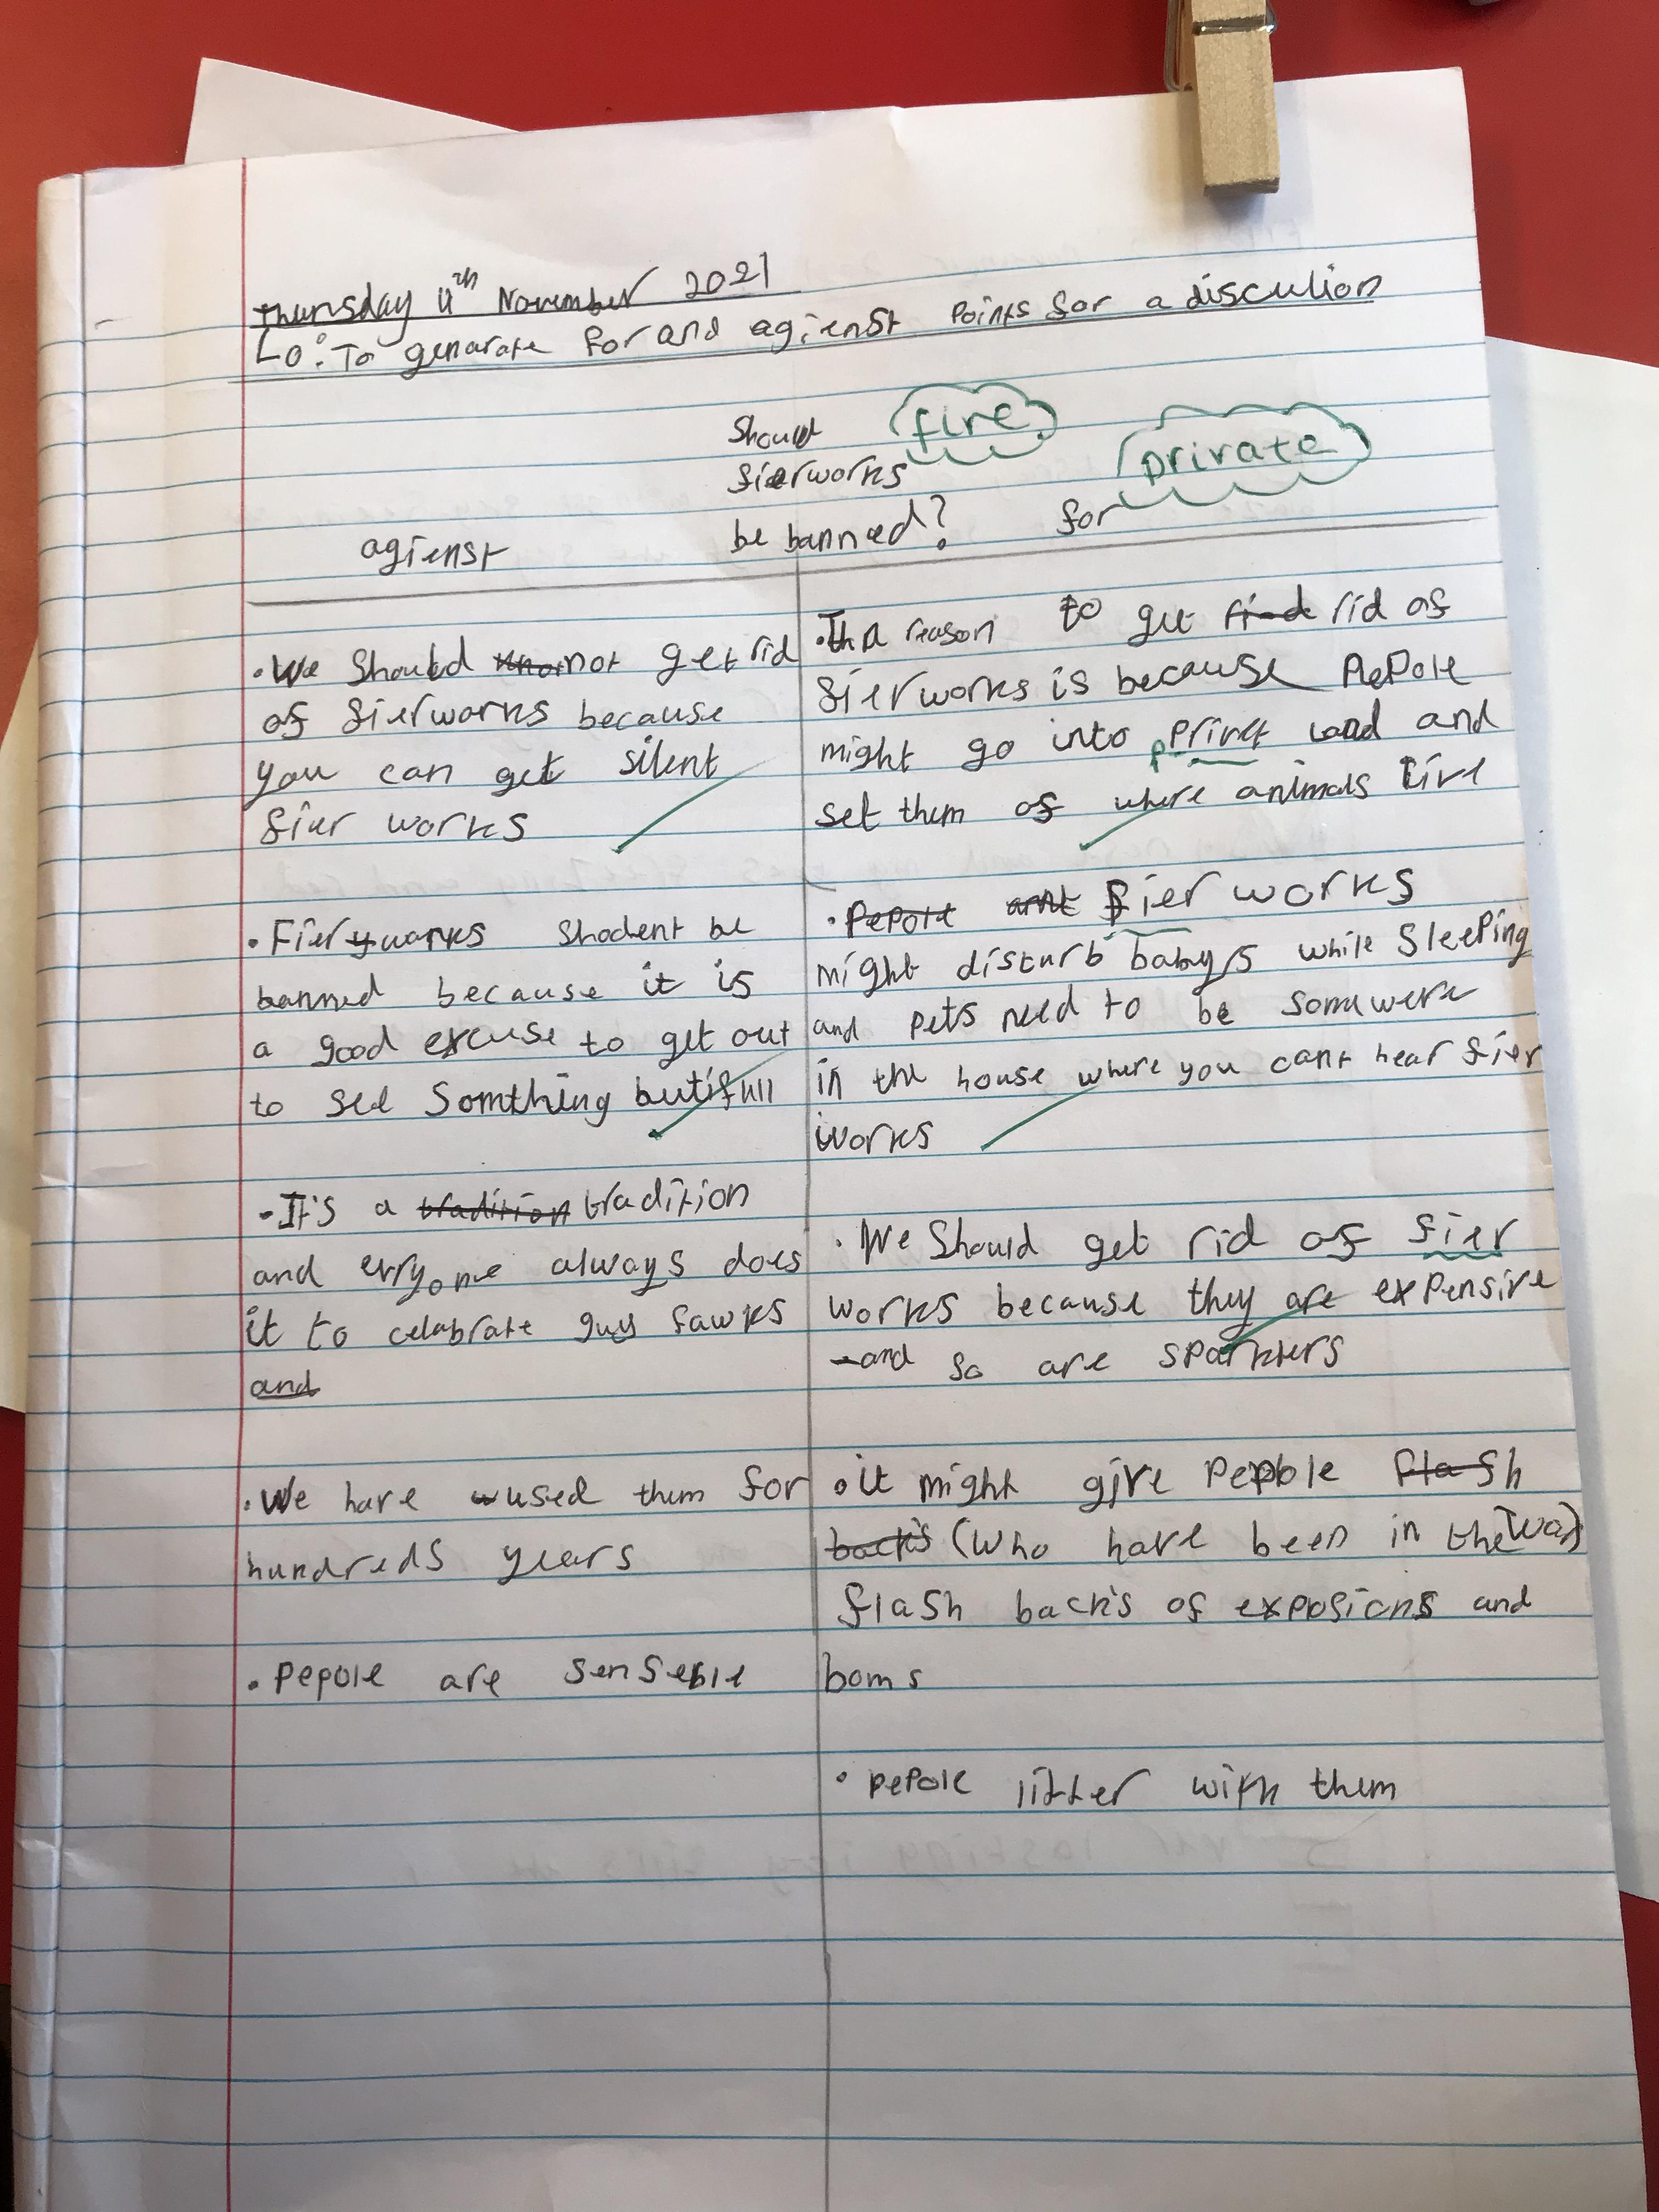 Thursday 11th November 2021
Lo: To genarate for and agienst points for a discution
Should
fierworks
be banned?
fire
private
agienst
for
• We Should not get rid
of fierworks because
you can get silent
fier works
• Fierworks shodent be
banned because it is
a good excuse to get out
to see Somthing butifull
• It's a tradition tradition
and evryone always does
it to celabrate guy fawks
and
• We have used them for
hundreds years
• Pepole are senseble
• The reason to get find rid of
fierworks is because Pepole
might go into privet land and
set them of where animals live
• Pepole arnt fier works
might disturb babys while sleeping
and pets need to be somewere
in the house where you cant hear fier
works
• We Should get rid of fier
works because they are expensive
and so are sparklers
• it might give Pepole flash
back's (who have been in the war)
flash back's of explosions and
boms
• pepole litter with them